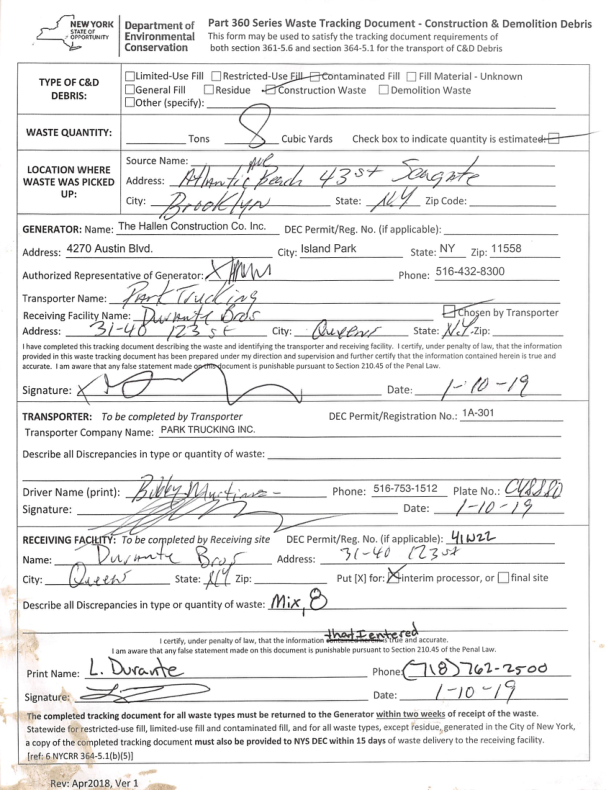 NEW YORK
STATE OF
OPPORTUNITY
Department of
Environmental
Conservation
Part 360 Series Waste Tracking Document - Construction & Demolition Debris
This form may be used to satisfy the tracking document requirements of
both section 361-5.6 and section 364-5.1 for the transport of C&D Debris
TYPE OF C&D
DEBRIS:
Limited-Use Fill Restricted-Use Fill Contaminated Fill Fill Material - Unknown
General Fill Residue Construction Waste Demolition Waste
Other (specify):
WASTE QUANTITY: Tons 8 Cubic Yards Check box to indicate quantity is estimated:
LOCATION WHERE
WASTE WAS PICKED
UP:
Source Name: ave
Address: Atlantic Beach 43 st Seagate
City: Brooklyn State: N.Y Zip Code:
GENERATOR: Name: The Hallen Construction Co. Inc. DEC Permit/Reg. No. (if applicable):
Address: 4270 Austin Blvd. City: Island Park State: NY Zip: 11558
Authorized Representative of Generator: X Phone: 516-432-8300
Transporter Name: Park Trucking
Receiving Facility Name: Durante Bros Chosen by Transporter
Address: 31-40 123 st City: Queens State: N.Y. Zip:
I have completed this tracking document describing the waste and identifying the transporter and receiving facility. I certify, under penalty of law, that the information
provided in this waste tracking document has been prepared under my direction and supervision and further certify that the information contained herein is true and
accurate. I am aware that any false statement made on this document is punishable pursuant to Section 210.45 of the Penal Law.
Signature: X Date: 1-10-19
TRANSPORTER: To be completed by Transporter DEC Permit/Registration No.: 1A-301
Transporter Company Name: PARK TRUCKING INC.
Describe all Discrepancies in type or quantity of waste:
Driver Name (print): Bobby Martin Phone: 516-753-1512 Plate No.:
Signature: Date: 1-10-19
RECEIVING FACILITY: To be completed by Receiving site DEC Permit/Reg. No. (if applicable): 41W22
Name: Durante Bros Address: 31-40 123 st
City: Queens State: NY Zip: Put [X] for: X interim processor, or final site
Describe all Discrepancies in type or quantity of waste: Mix, 8
I certify, under penalty of law, that the information contained herein is that I entered true and accurate.
I am aware that any false statement made on this document is punishable pursuant to Section 210.45 of the Penal Law.
Print Name: L. Durante Phone: (718) 762-2500
Signature: Date: 1-10-19
The completed tracking document for all waste types must be returned to the Generator within two weeks of receipt of the waste.
Statewide for restricted-use fill, limited-use fill and contaminated fill, and for all waste types, except residue, generated in the City of New York,
a copy of the completed tracking document must also be provided to NYS DEC within 15 days of waste delivery to the receiving facility.
[ref: 6 NYCRR 364-5.1(b)(5)]
Rev: Apr2018, Ver 1